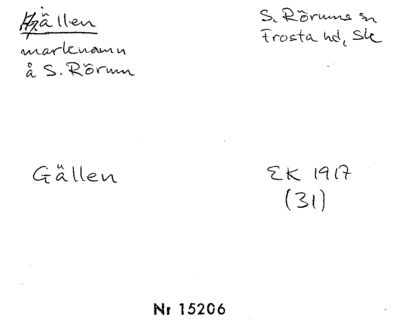 Hjällen
marknamn
å S. Rörum
S. Rörums sn
Frosta hd, Sk
Gällen
EK 1917
(31)
Nr 15206